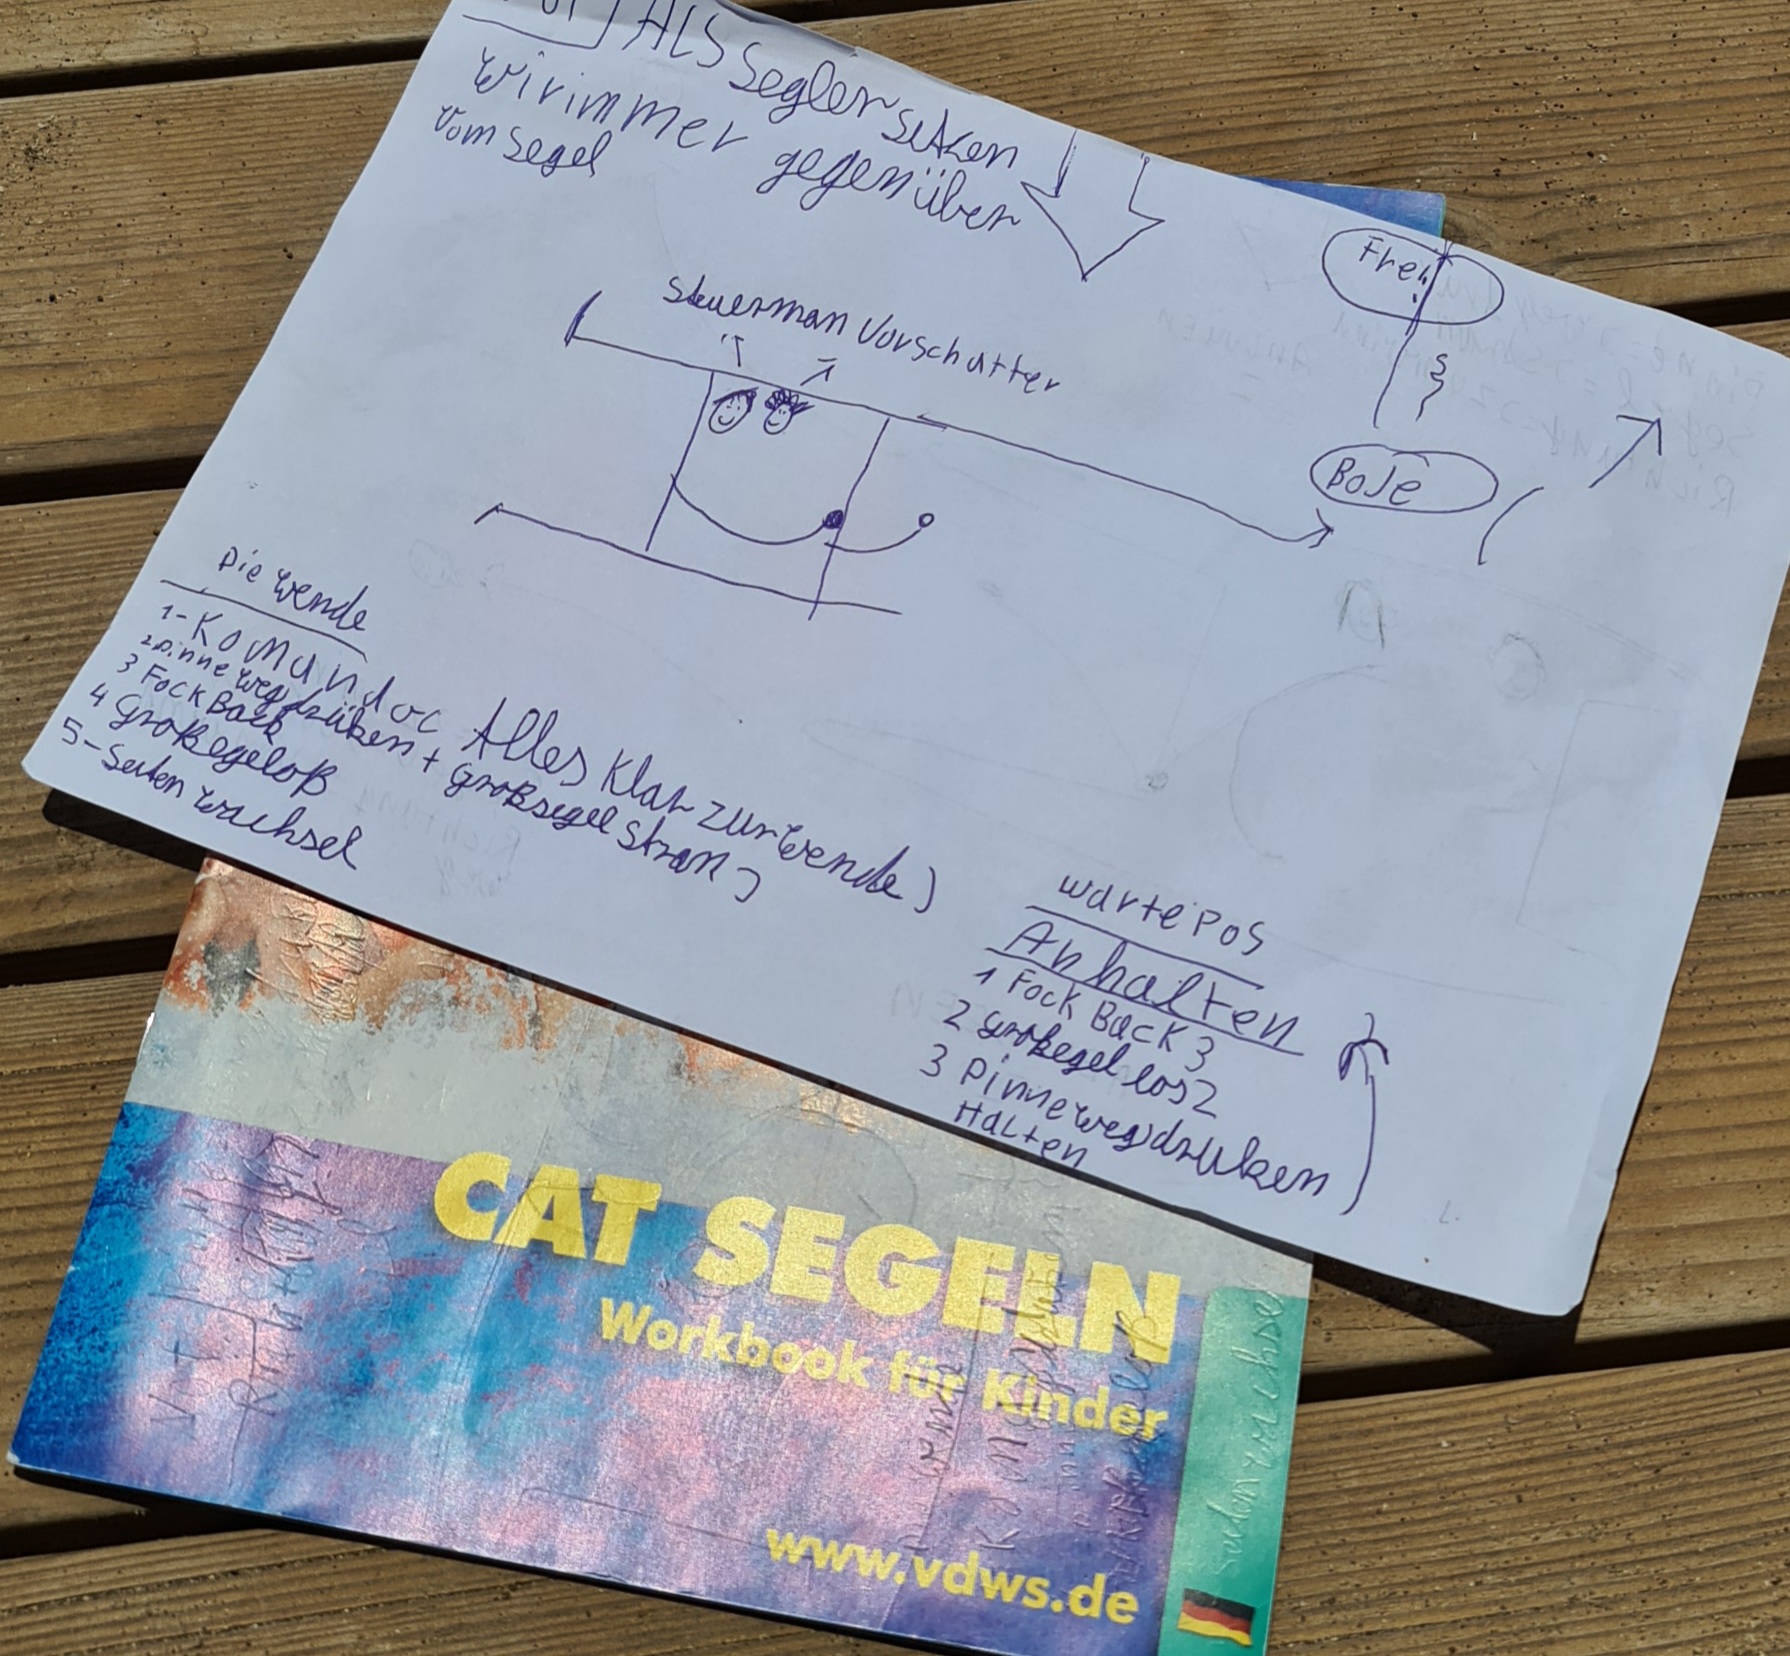 ALS Segler sitzen
wir immer gegenüber
vom Segel
Steuerman Vorschotter
Frei
Boje
Die Wende
1-Komando( Alles Klar zur Wende)
2 Pinne wegdrüken + Großsegel stram
3 Fock Back
4 Großegeloß
5-Seiten wachsel
Warte Pos
Anhalten
1 Fock Back 3
2 Großegel los 2
3 Pinne weg drüken
Halten
CAT SEGELN
Workbook für Kinder
www.vdws.de